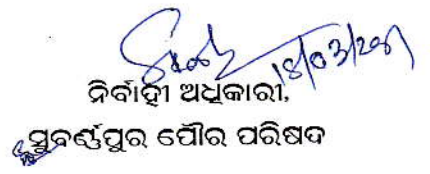 18/03/2021
ନିର୍ବାହୀ ଅଧିକାରୀ,
ସୁବର୍ଣ୍ଣପୁର ପୌର ପରିଷଦ